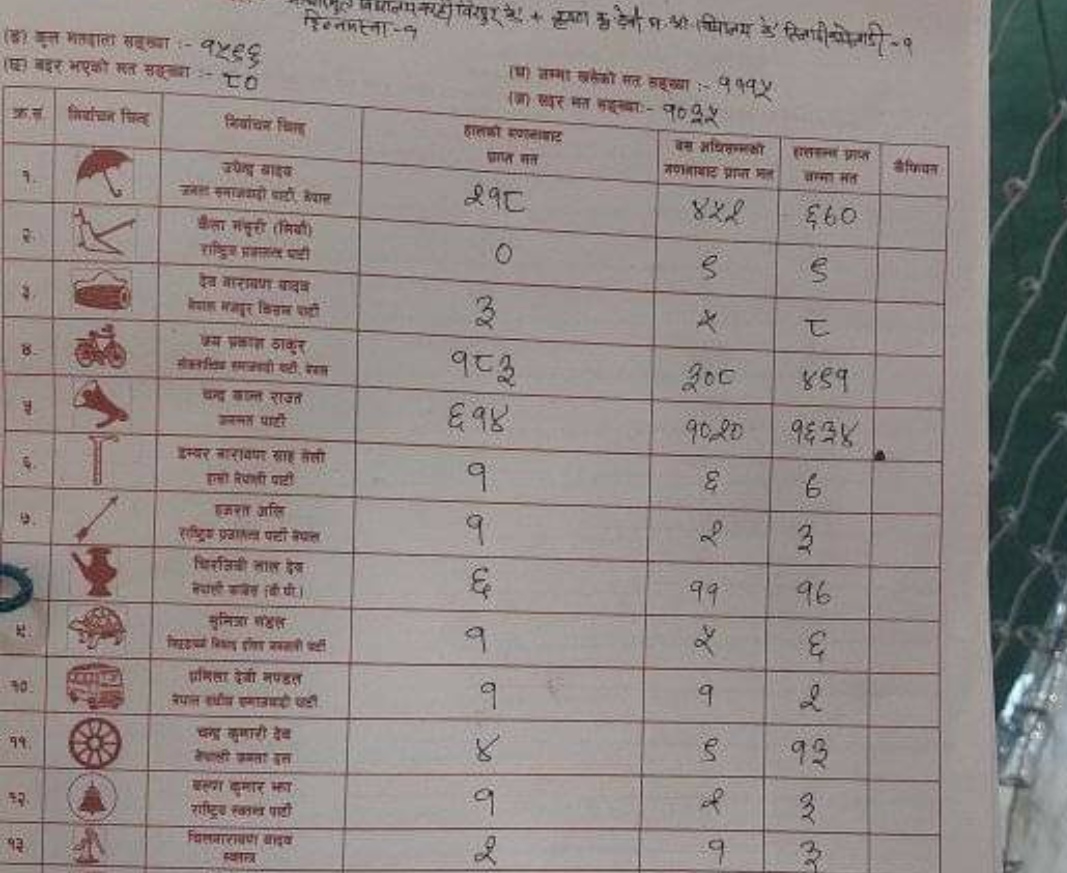 (ङ) कुल मतदाता सङ्ख्या :- १५९६
(छ) बदर भएको मत सङ्ख्या :- ८०
(च) जम्मा खसेको मत सङ्ख्या :- १११५
(ज) सदर मत सङ्ख्या:- १०३५
क्र.सं. निर्वाचन चिन्ह निर्वाचन चिन्ह हालको गणनाबाट प्राप्त मत यस अघिसम्मको गणनाबाट प्राप्त मत हालसम्म प्राप्त जम्मा मत कैफियत
१. उपेन्द्र यादव
जनता समाजवादी पार्टी, नेपाल २१८ ४५२ ६७०
२. मंसुरी (मियाँ)
राष्ट्रिय प्रजातन्त्र पार्टी ० ९ ९
३. देव नारायण यादव
नेपाल मजदुर किसान पार्टी ३ ५ ८
४. जय प्रकाश ठाकुर
लोकतान्त्रिक समाजवादी पार्टी, नेपाल १८३ ३०८ ४९१
५ चन्द्र कान्त राउत
जनमत पार्टी ६१४ १०२० १६३४
६. डम्बर नारायण साह तेली
हाम्रो नेपाली पार्टी १ ६ ७
७. हजरत अलि
राष्ट्रिय प्रजातन्त्र पार्टी नेपाल १ २ ३
चिरंजिवी लाल देव
नेपाली कांग्रेस (बी.पी.) ६ ११ १७
९ सुमित्रा मंडल
१ ५ ६
१०. प्रमिला देवी मण्डल
नेपाल संघीय समाजवादी पार्टी १ १ २
११. चन्द्र कुमारी देव
नेपाली जनता दल ४ ९ १३
१२. कुमार झा
राष्ट्रिय स्वतन्त्र पार्टी १ २ ३
१३ यादव
स्वतन्त्र २ १ ३